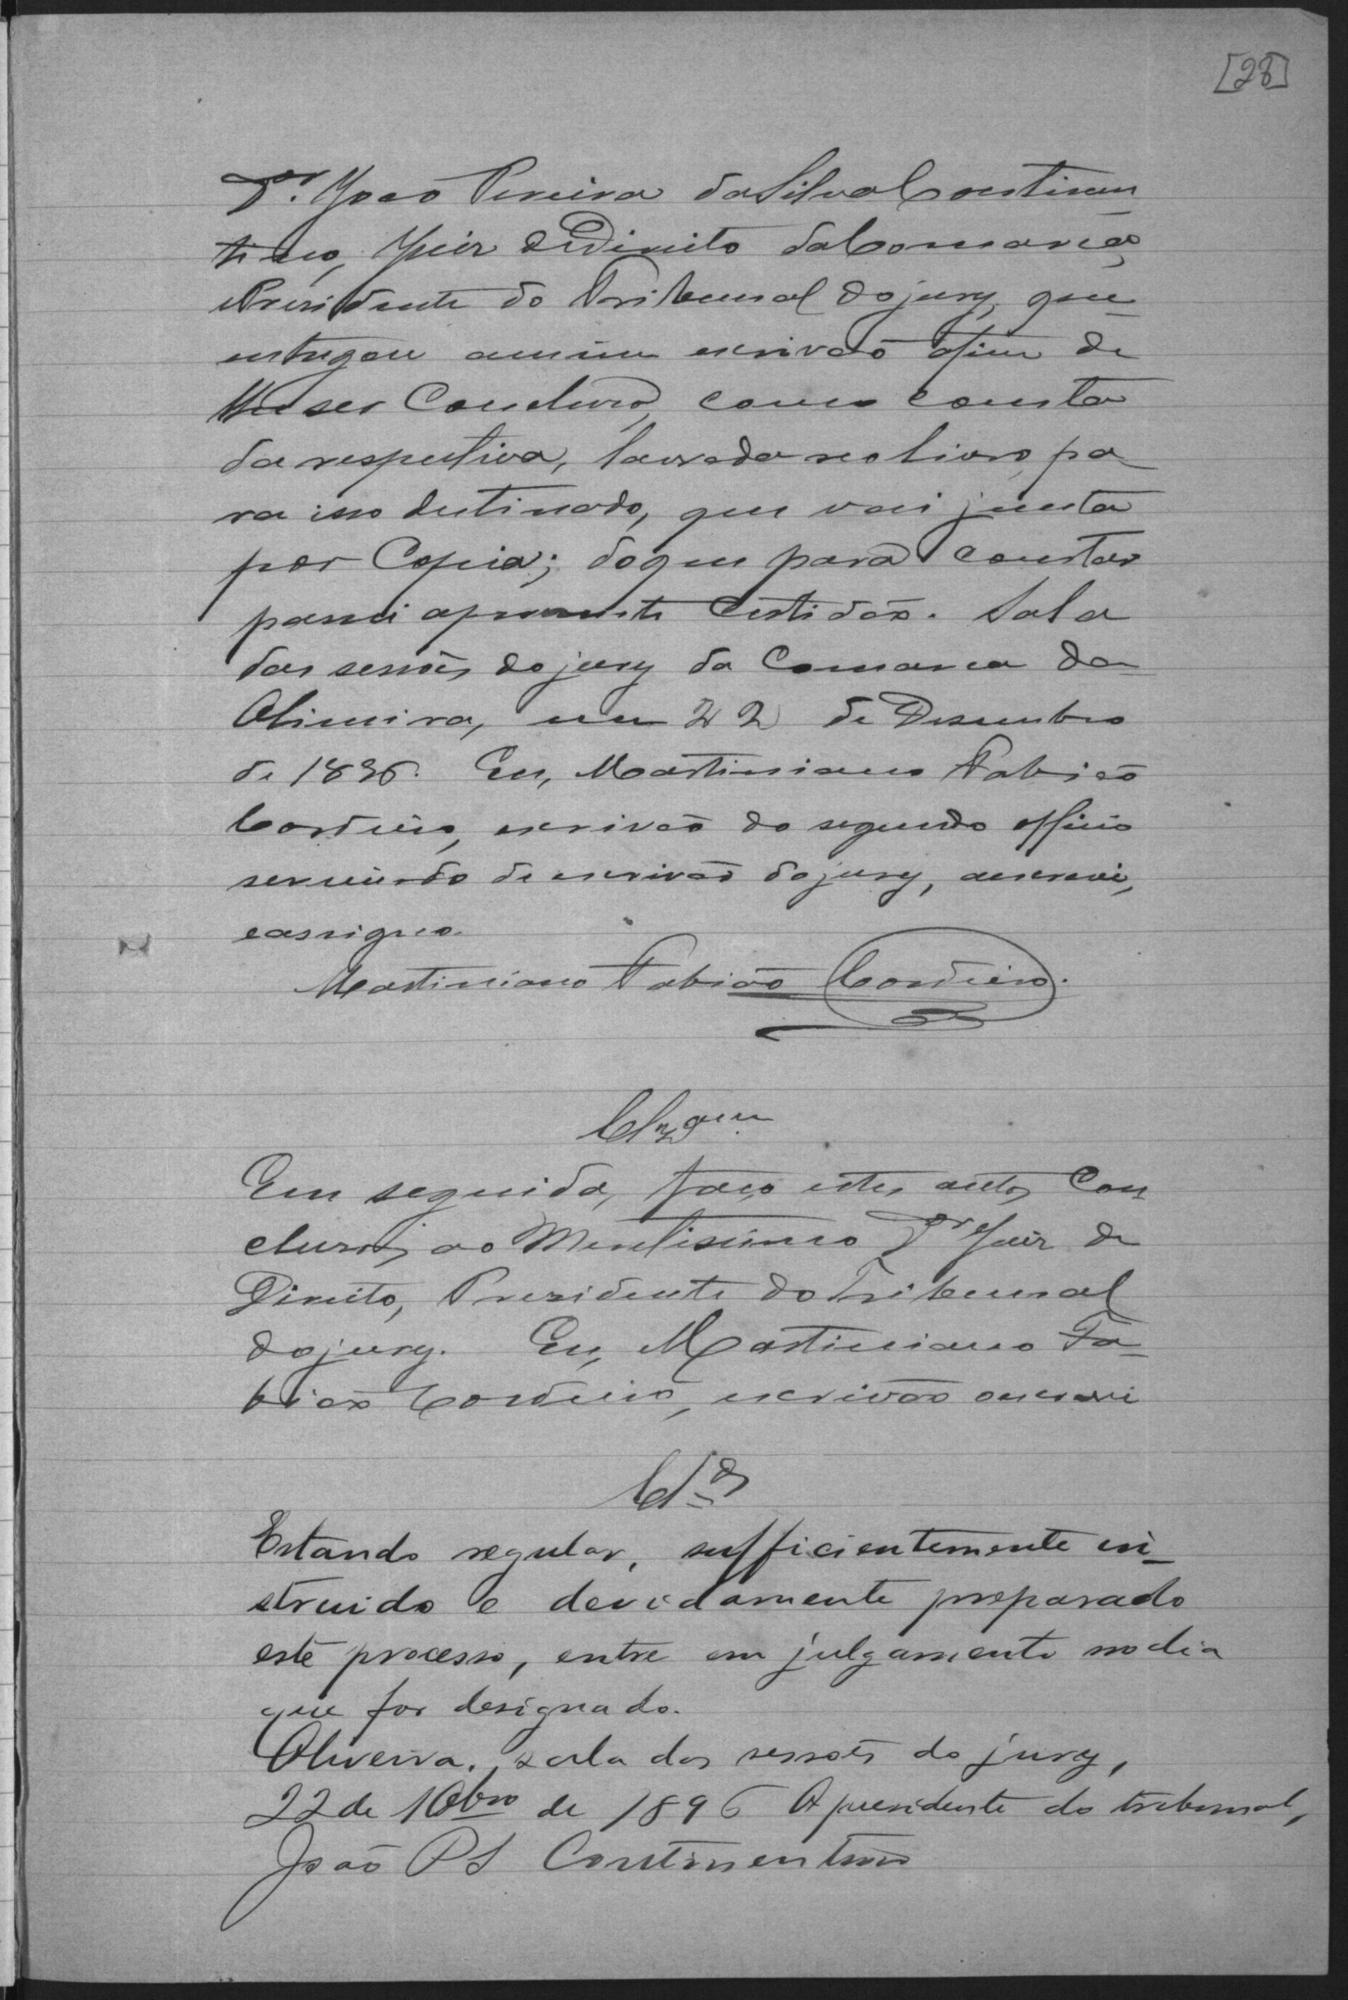 [28]
Dr. João Pereira da Silva Continen
tino, Juiz de Direito da Comarca,
Presidente do Tribunal do jury, que
entregou amim escrivão afim de
lhe ser Concluso, como consta
da respectiva, lavrada no livro pa
ra isso destinado, que vai junta
por Copia; do que para constar
passei apresente Certidão. Sala
das sessões do jury da Comarca da
Oliveira, em 22 de Desembro
de 1896. Eu, Martiniano Fabião
Cordeiro, escrivão do segundo officio
servindo de escrivão do jury, aescrevi,
eassigno.
Martiniano Fabião Cordeiro.
Clzam
Em seguida, faço estes autos Con
clusos, ao Meretissimo Dr Juiz de
Direito, Presidente do Tribunal
do jury. Eu, Martiniano Fa-
bião Cordeiro, escrivão oescrevi
Clos
Estando regular, sufficientemente in-
struido e devidamente preparado
este processo, entre em julgamento no dia
que for designado.
Oliveira, sala das sessões do jury,
22 de 10bro de 1896 O presidente do tribunal,
João PS Continentino